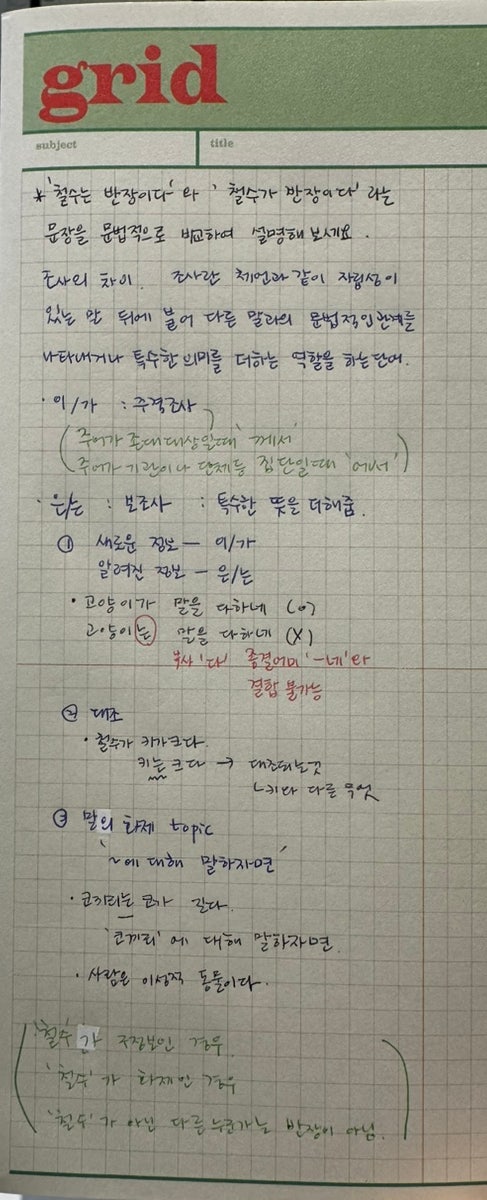 grid
subject
title
* '철수는 반장이다'와 '철수가 반장이다'라는
문장을 문법적으로 비교하여 설명해 보세요.
조사의 차이. 조사란 체언과 같이 자립성이
있는 말 뒤에 붙어 다른 말과의 문법적인 관계를
나타내거나 특수한 의미를 더하는 역할을 하는 단어.
· 이/가 : 주격조사
(주어가 존대 대상일때 '께서'
주어가 기관이나 단체등 집단일때 '에서')
· 은/는 : 보조사 : 특수한 뜻을 더해줌.
① 새로운 정보 — 이/가
알려진 정보 — 은/는
· 고양이가 말을 다하네 (o)
고양이는 말을 다하네 (X)
부사 '다' 종결어미 '-네'와
결합 불가능
② 대조
· 철수가 키가크다.
키는 크다 → 대조되는것
ㄴ키와 다른 무엇
③ 말의 화제 topic
'~에 대해 말하자면'
· 코끼리는 코가 길다.
'코끼리'에 대해 말하자면.
· 사람은 이성적 동물이다.
'철수'가 경우.
'철수'가 화제인 경우
'철수'가 아닌 다른 누군가는 반장이 아님.